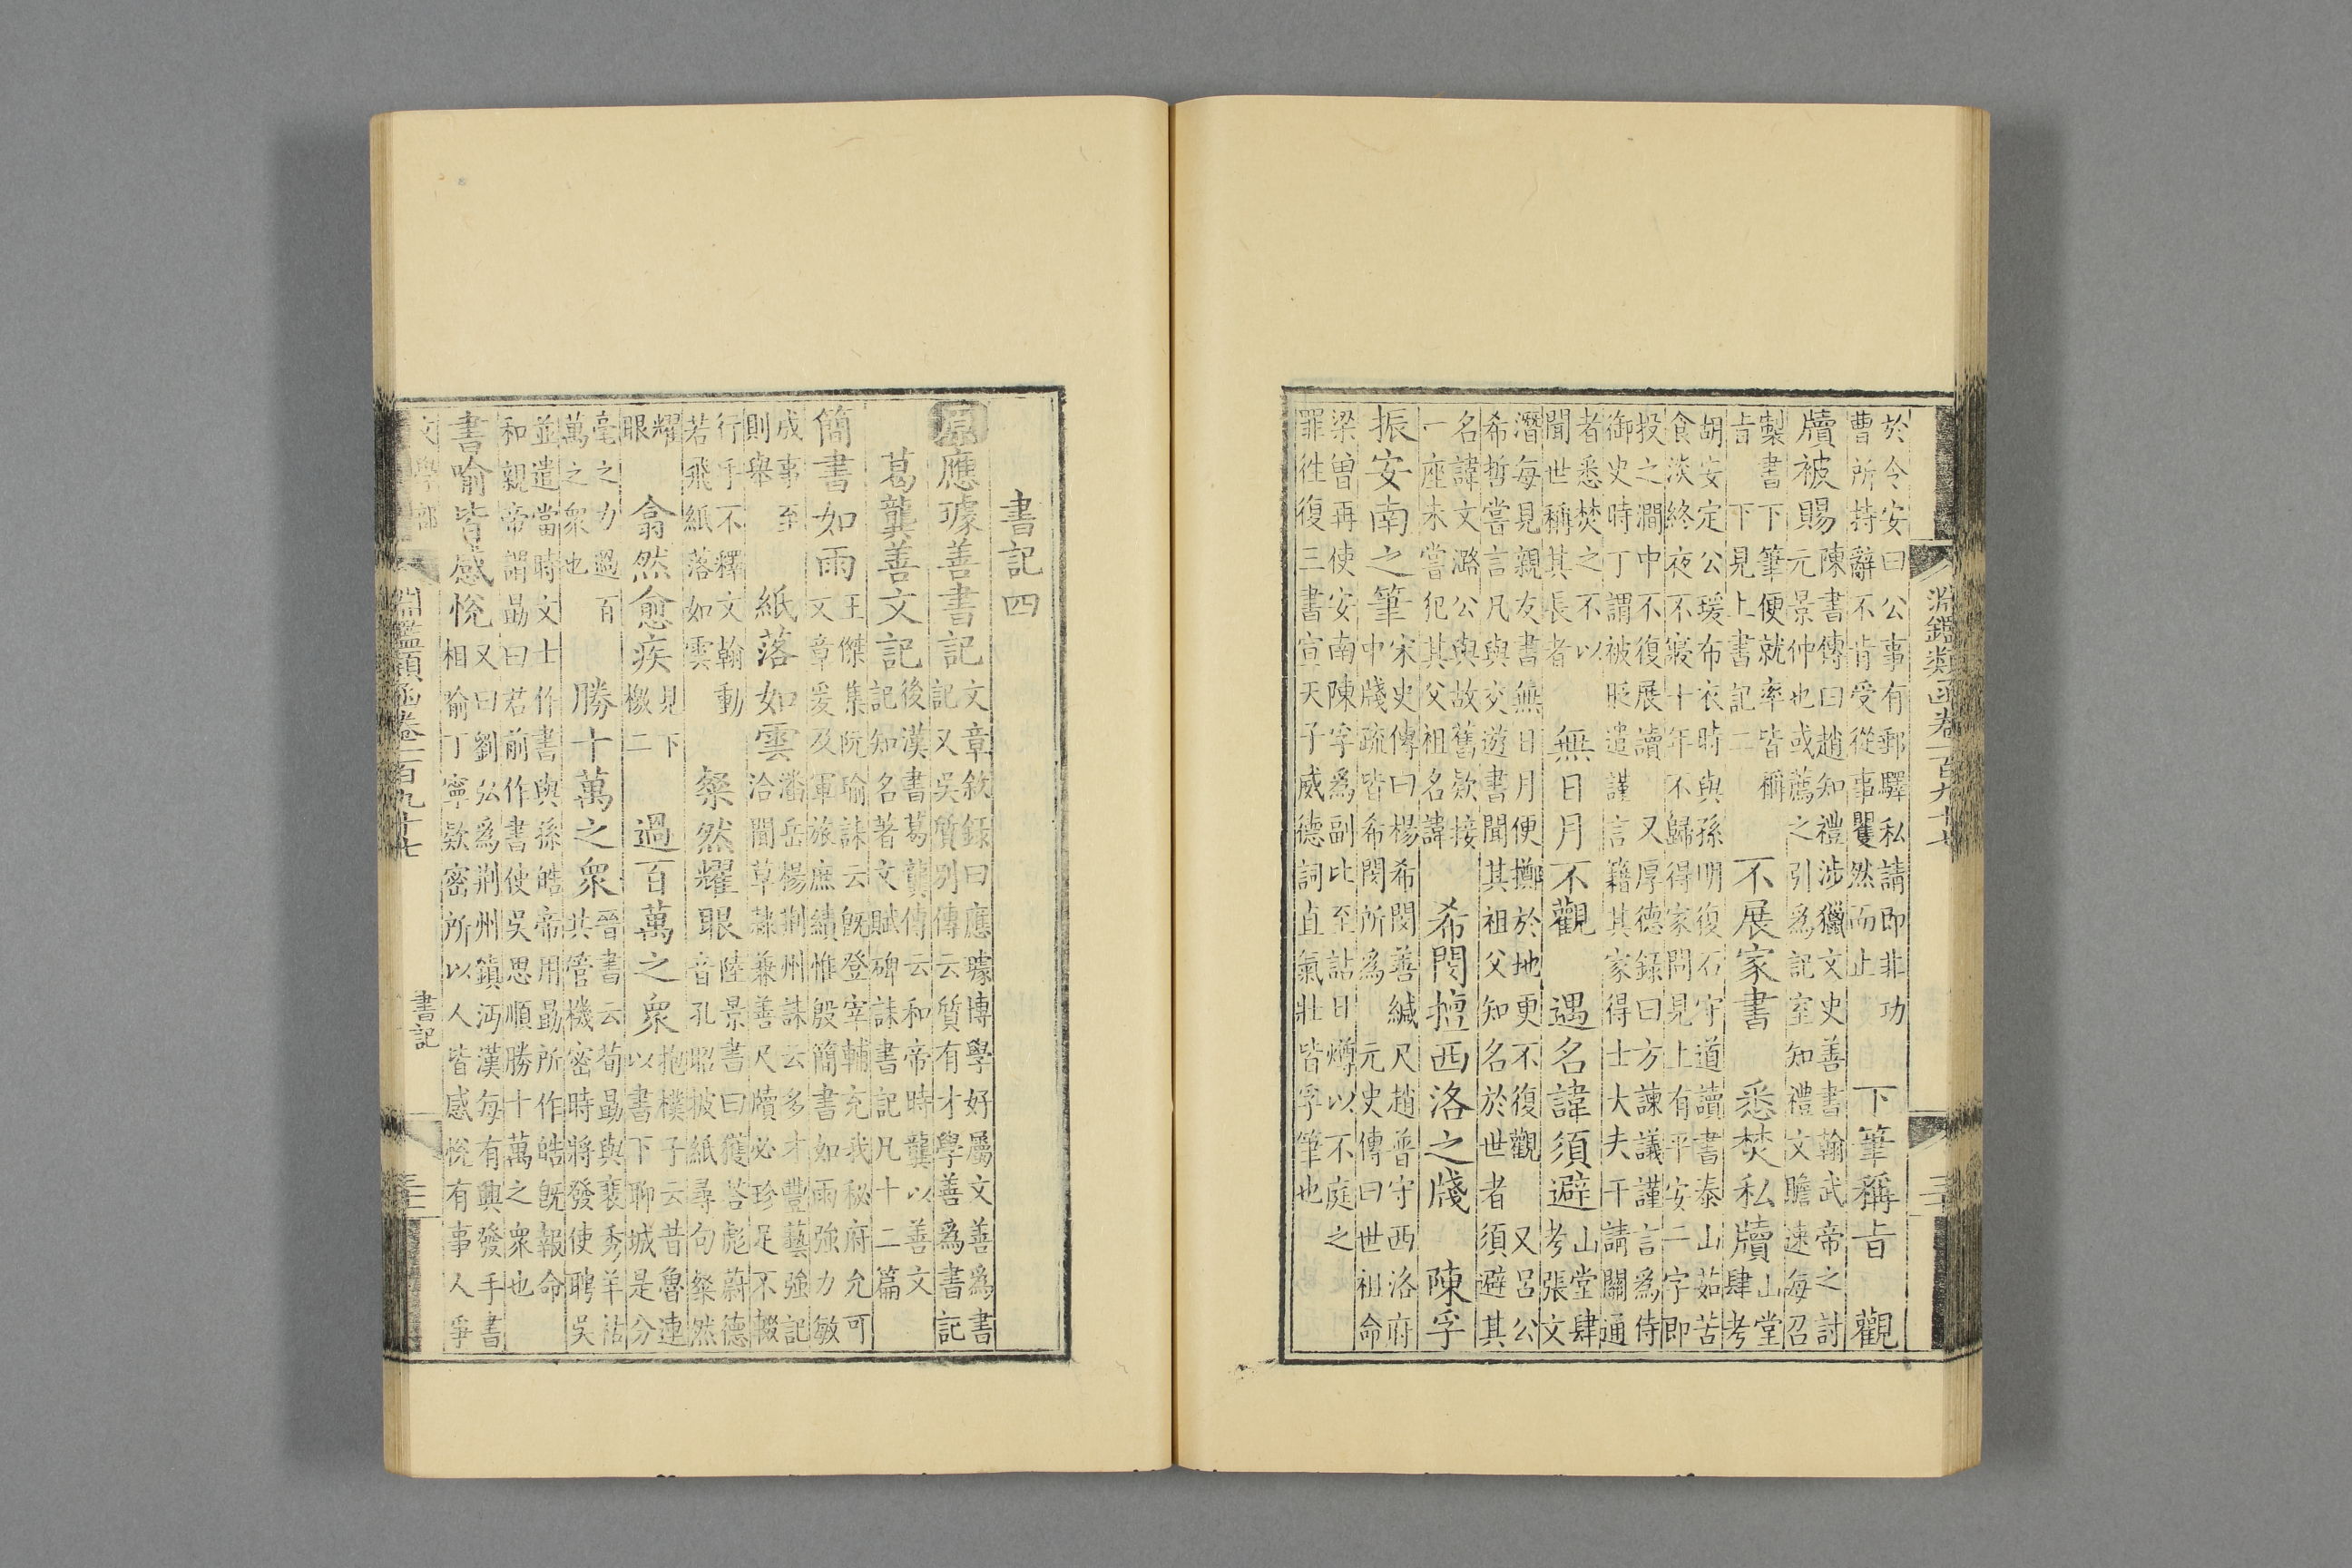 淵鑑類函卷一百九十七
於令安曰公事有郵驛私請即非功
曹所持辭不肯受從事矍然而止
下筆稱旨　觀
牘被賜
陳書傳曰趙知禮涉獵文史善書翰武帝之討
元景仲也或薦之引爲記室知禮文贍速每召
製書下筆便就率皆稱
旨　下見上書記二
不展家書　悉焚私牘
山堂
肆考
胡安定公瑗布衣時與孫明復石守道讀書泰山茹苦
食淡終夜不寢十年不歸得家問見上有平安二字即
投之澗中不復展讀　又厚德錄曰方諫議謹言爲侍
御史時丁謂被貶遣謹言籍其家得士大夫干請關通
者悉焚之不以
聞世稱其長者
無日月不觀　遇名諱須避
山堂肆
考張文
潛每見親友書無日月便擲於地更不復觀　又呂公
希哲嘗言凡與交遊書聞其祖父知名於世者須避其
名諱文潞公與故舊欵接
一座未嘗犯其父祖名諱
希閔擅西洛之牋　陳孚
振安南之筆
宋史傳曰楊希閔善緘尺趙普守西洛府
中牋疏皆希閔所爲　元史傳曰世祖命
梁曾再使安南陳孚爲副比至詰日以不庭之
罪往復三書宣天子威德詞直氣壯皆孚筆也
書記四
原應璩善書記
文章敘錄曰應璩博學好屬文善爲書
記　又吳質別傳云質有才學善爲書記
葛龔善文記
後漢書葛龔傳云和帝時龔以善文
記知名著文賦碑誄書記凡十二篇
簡書如雨
王傑集阮瑜誄云旣登宰輔充我秘府允可
文章爰及軍旅庶績惟殷簡書如雨強力敏
成事至
則舉
紙落如雲
潘岳楊荆州誄云多才豐藝強記
洽聞草隸兼善尺牘必珍足不輟
行手不釋文翰動
若飛紙落如雲
粲然耀眼
陸景書曰獲荅彪蔚德
音孔昭披紙尋句粲然
耀
眼
翕然愈疾
見下
檄二
過百萬之衆
抱樸子云昔魯連
以書下聊城是分
毫之力過百
萬之衆也
勝十萬之衆
晉書云荀勗與裴秀羊祜
共管機密時將發使聘吳
並遣當時文士作書與孫皓帝用勗所作皓旣報命
和親帝謂勗曰若前作書使吳思順勝十萬之衆也
書喻皆感悅
又曰劉弘爲荆州鎮沔漢每有興發手書
相喻丁寧欵密所以人皆感悅有事人爭
文學部
淵鑑類函卷一百九十七
書記